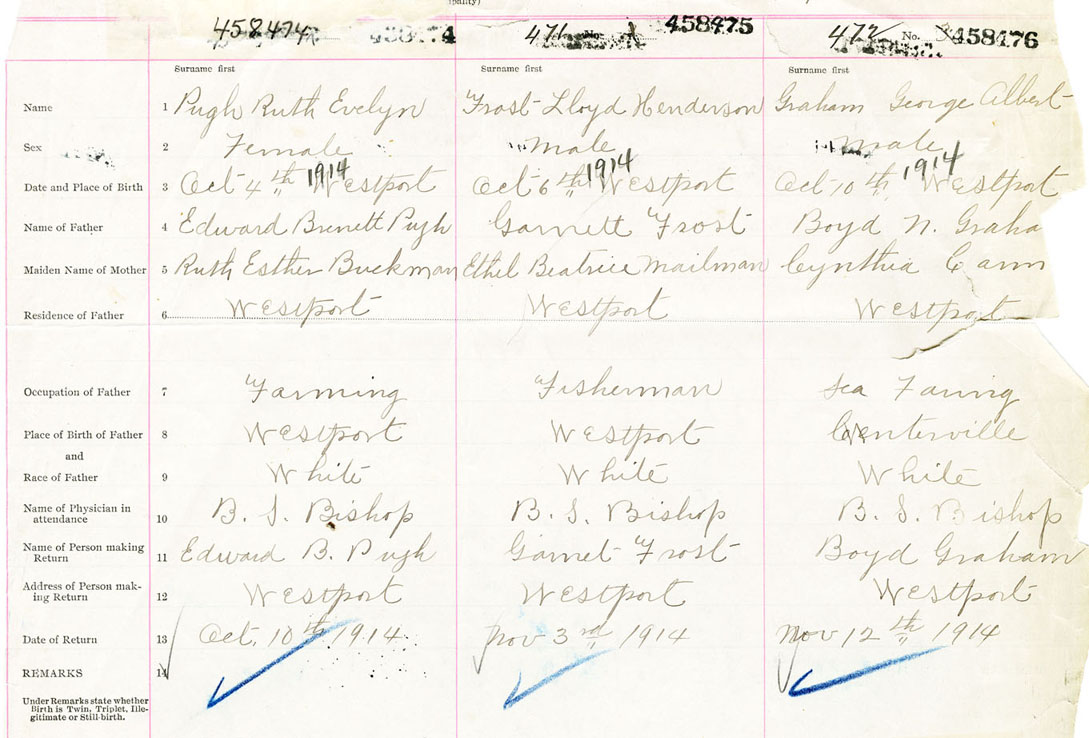 458474 458474 471 No. 458475 472 No. 458476
Surname first Surname first Surname first
Name 1 Pugh Ruth Evelyn Frost Lloyd Henderson Graham George Albert
Sex 2 Female Male Male
Date and Place of Birth 3 Oct 4th 1914 Westport Oct 6th 1914 Westport Oct 10th 1914 Westport
Name of Father 4 Edward Brenett Pugh Garnett Frost Boyd N. Graha
Maiden Name of Mother 5 Ruth Esther Buckman Ethel Beatrice Mailman Cynthia Cann
Residence of Father 6 Westport Westport Westport
Occupation of Father 7 Farming Fisherman Sea Faring
Place of Birth of Father 8 Westport Westport Centerville
and
Race of Father 9 White White White
Name of Physician in
attendance 10 B. S. Bishop B. S. Bishop B. S. Bishop
Name of Person making
Return 11 Edward B. Pugh Garnet Frost Boyd Graham
Address of Person mak-
ing Return 12 Westport Westport Westport
Date of Return 13 Oct. 10th 1914. Nov 3rd, 1914 Nov 12th 1914
REMARKS 14
Under Remarks state whether
Birth is Twin, Triplet, Ille-
gitimate or Still-birth.